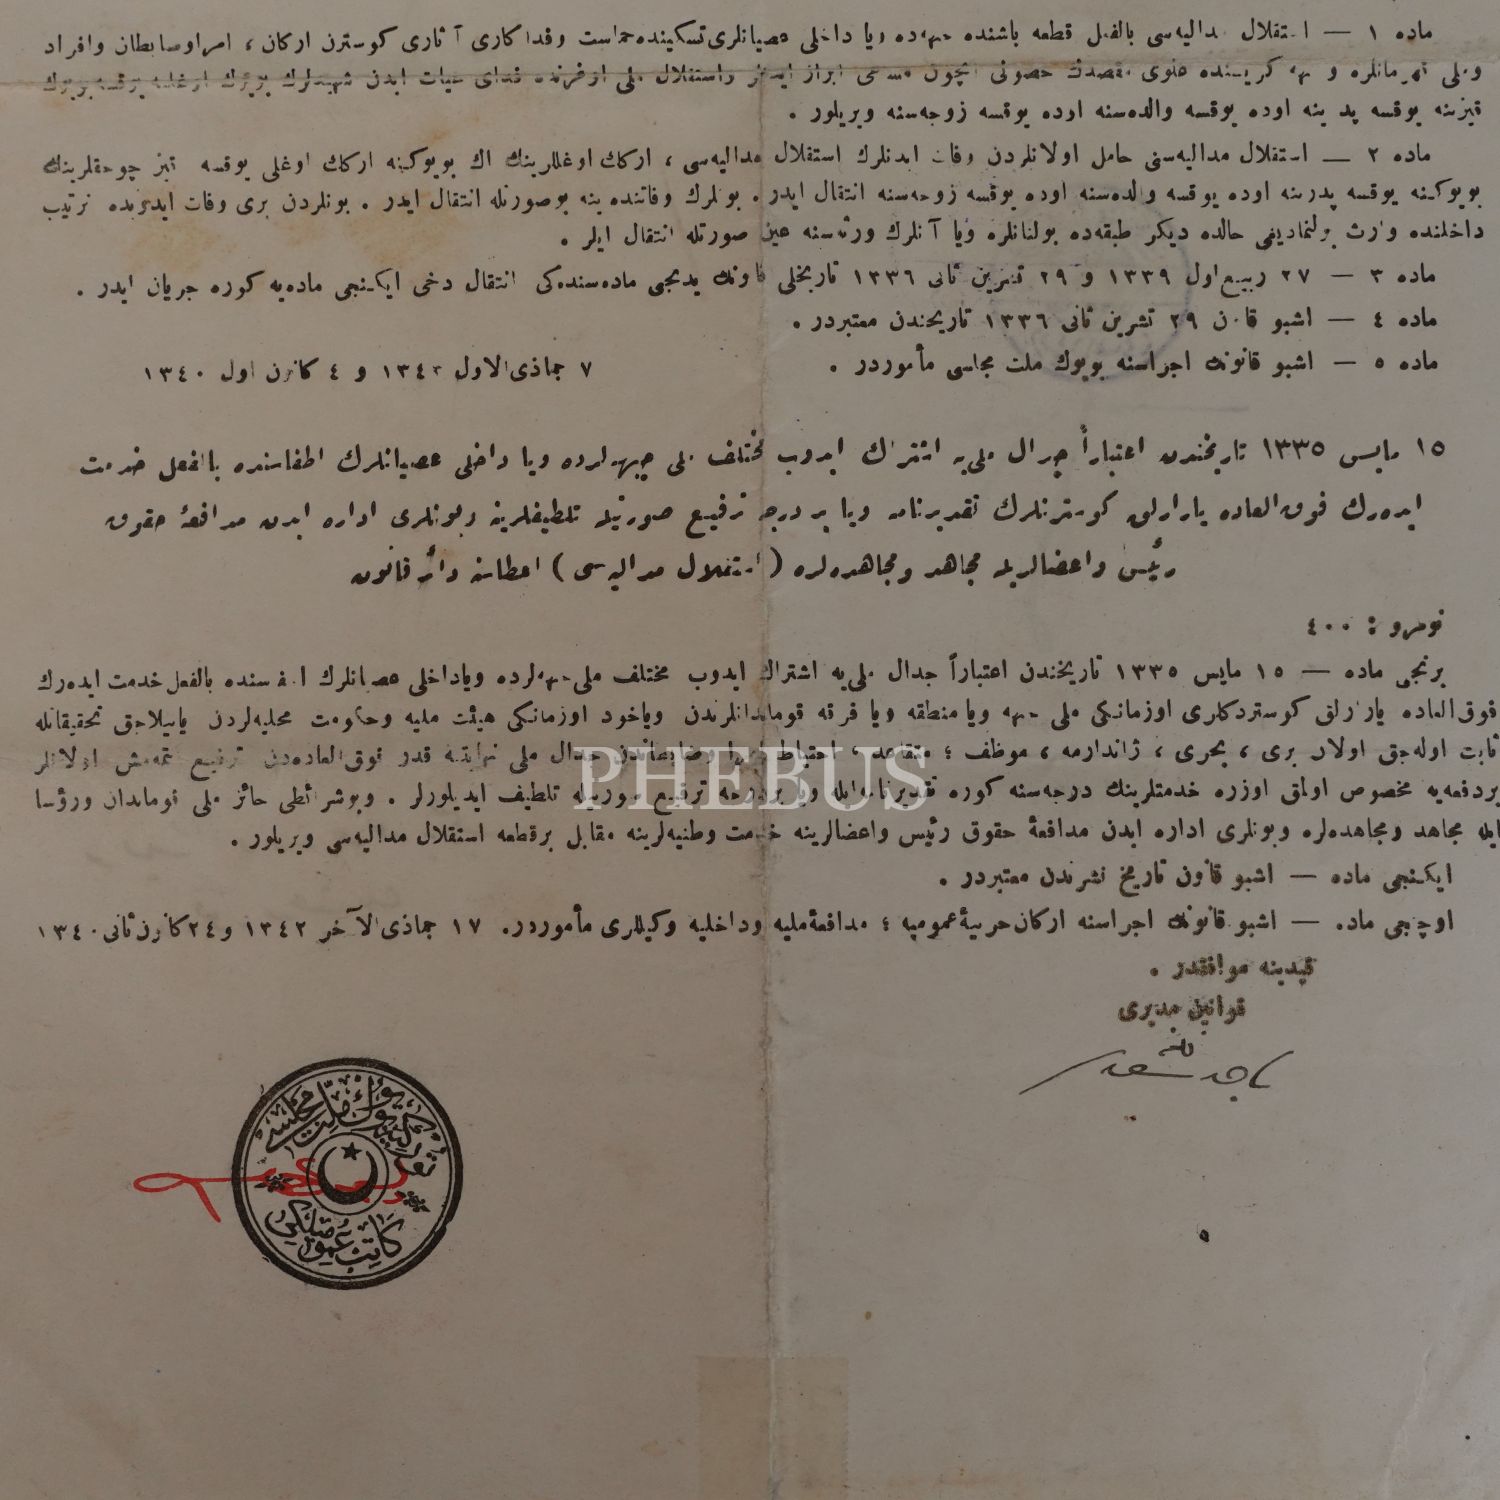 ماده ١ — استقلال مدالیه‌سی بالفعل قطعه باشنده جبهه‌ده ویا داخلی عصیانلری تسکینده حماست وفداکاری آثاری کوسترن ارکان ، امرا وضابطان وافراد
وملی قهرمانلره و جبهه کریسنده علوی مقصدك حصولی ایچون مساعی ابراز ایدنلر واستقلال ملی اوغرنده فدای حیات ایدن شهیدلرك بویوك اوغلنه یوقسه بویوك
قیزینه یوقسه پدرینه اوده یوقسه والده‌سنه اوده یوقسه زوجه‌سنه ویریلور .
ماده ٢ — استقلال مدالیه‌سنی حامل اولانلردن وفات ایدنلرك استقلال مدالیه‌سی ، ارکك اوغللرینك اك بویوکینه ارکك اوغلی یوقسه قیز چوجقلرینك
بویوکنه یوقسه پدرینه اوده یوقسه والده‌سنه اوده یوقسه زوجه‌سنه انتقال ایدر . بونلرك وفاتنده ینه بوصورتله انتقال ایدر . بونلردن بری وفات ایدوبده ترتیب
داخلنده وارث بولنمادیغی حالده دیکر طبقه‌ده بولنانلره ویا آنلرك ورثه‌سنه عین صورتله انتقال ایلر .
ماده ٣ — ٢٧ ربیع اول ١٣٣٩ و ٢٩ تشرین ثانی ١٣٣٦ تاریخلی قانونك یدنجی ماده‌سنده‌کی انتقال دخی ایکنجی ماده‌یه کوره جریان ایدر .
ماده ٤ — اشبو قانون ٢٩ تشرین ثانی ١٣٣٦ تاریخندن معتبردر .
ماده ٥ — اشبو قانونك اجراسنه بویوك ملت مجلسی مأموردر .
٧ جماذی‌الاول ١٣٤٢ و ٤ کانون اول ١٣٤٠
١٥ مایس ١٣٣٥ تاریخندن اعتباراً جدال ملی‌یه اشتراك ایدوب مختلف ملی جبهه‌لرده ویا داخلی عصیانلرك اطفاسنده بالفعل خدمت
ایده‌رك فوق العاده یارارلق کوسترنلرك تقدیرنامه ویا بر درجه ترفیع صورتیله تلطیفلرینه وبونلری اداره ایدن مدافعۀ حقوق
رئیس واعضالریله مجاهد ومجاهده‌لره ( استقلال مدالیه‌سی ) اعطاسنه دائر قانون
نومرو : ٤٠٠
برنجی ماده — ١٥ مایس ١٣٣٥ تاریخندن اعتباراً جدال ملی‌یه اشتراك ایدوب مختلف ملی جبهه‌لرده ویاداخلی عصیانلرك اطفاسنده بالفعل خدمت ایده‌رك
فوق العاده یارارلق کوستردکلری اوزمانکی ملی جبهه ویا منطقه ویا فرقه قوماندانلرندن ویاخود اوزمانکی هیئت ملیه وحکومت محلیه‌لردن یاپیلاجق تحقیقاتله
ثابت اوله‌جق اولان بری ، بحری ، ژاندارمه ، موظف ؛ متقاعد ، احتیاط امرا وضابطاندن جدال ملی نهایتنه قدر فوق العاده‌دن ترفیع ایتمه‌مش اولانلر
بردفعه‌یه مخصوص اولمق اوزره خدمتلرینك درجه‌سنه کوره تقدیرنامه ایله ویا بردرجه ترفیع صورتیله تلطیف ایدیلورلر . وبوشرائطی حائز ملی قوماندان ورؤسا
ایله مجاهد ومجاهده‌لره وبونلری اداره ایدن مدافعۀ حقوق رئیس واعضالرینه خدمت وطنیه‌لرینه مقابل برقطعه استقلال مدالیه‌سی ویریلور .
ایکنجی ماده — اشبو قانون تاریخ نشرندن معتبردر .
اوچنجی ماده — اشبو قانونك اجراسنه ارکان حربیۀ عمومیه ؛ مدافعۀ ملیه وداخلیه وکیللری مأموردر. ١٧ جماذی‌الآخر ١٣٤٢ و ٢٤ کانون ثانی ١٣٤٠
قیدینه موافقدر .
قوانین مدیری
PHEBUS
تورکیه بیوك ملت مجلسی
کاتب عمومیلکی